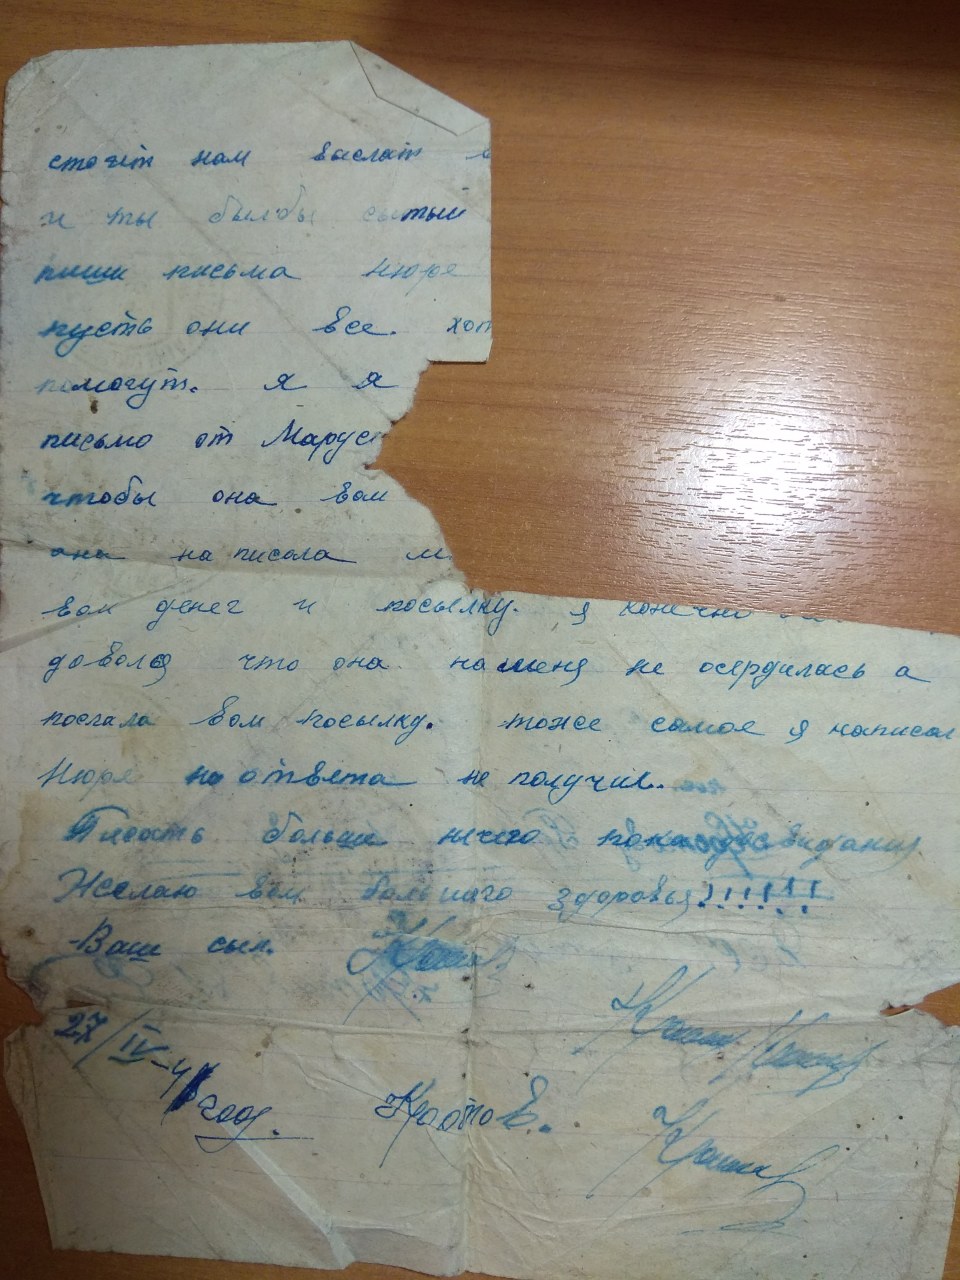 стоит нам выслать в
и ты былбы сытый
пиши письма Нюре
пусть они все хот
помогут. я я
письмо от Марус
чтобы она вам
она написала м
вам денег и посылку. я конечно
доволен что она на меня не осердилась а
послала вам посылку. тоже самое я написал
Нюре но ответа не получил.
Писать больши нечего пока досвидания
Желаю вам большого здоровья!!!!!!!
Ваш сын.
27/IV-4 год.
Кротов.